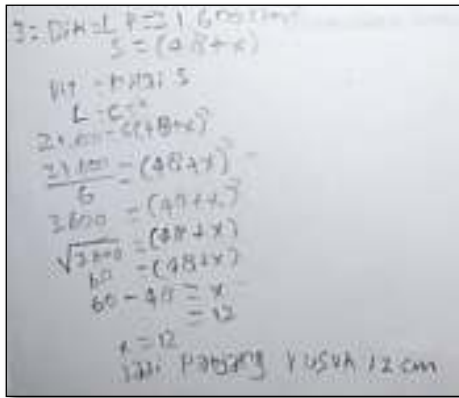 3= Dik = L P = 21 600
S = (48+x)
Dit =
L =
21.600 = 6(48+x)²
21.600/6 = (48+x)²
3600 = (48+x)²
√3600 = (48+x)
60 = (48+x)
60 - 48 = x
= 12
x = 12
Jadi Panjang rusuk 12 cm